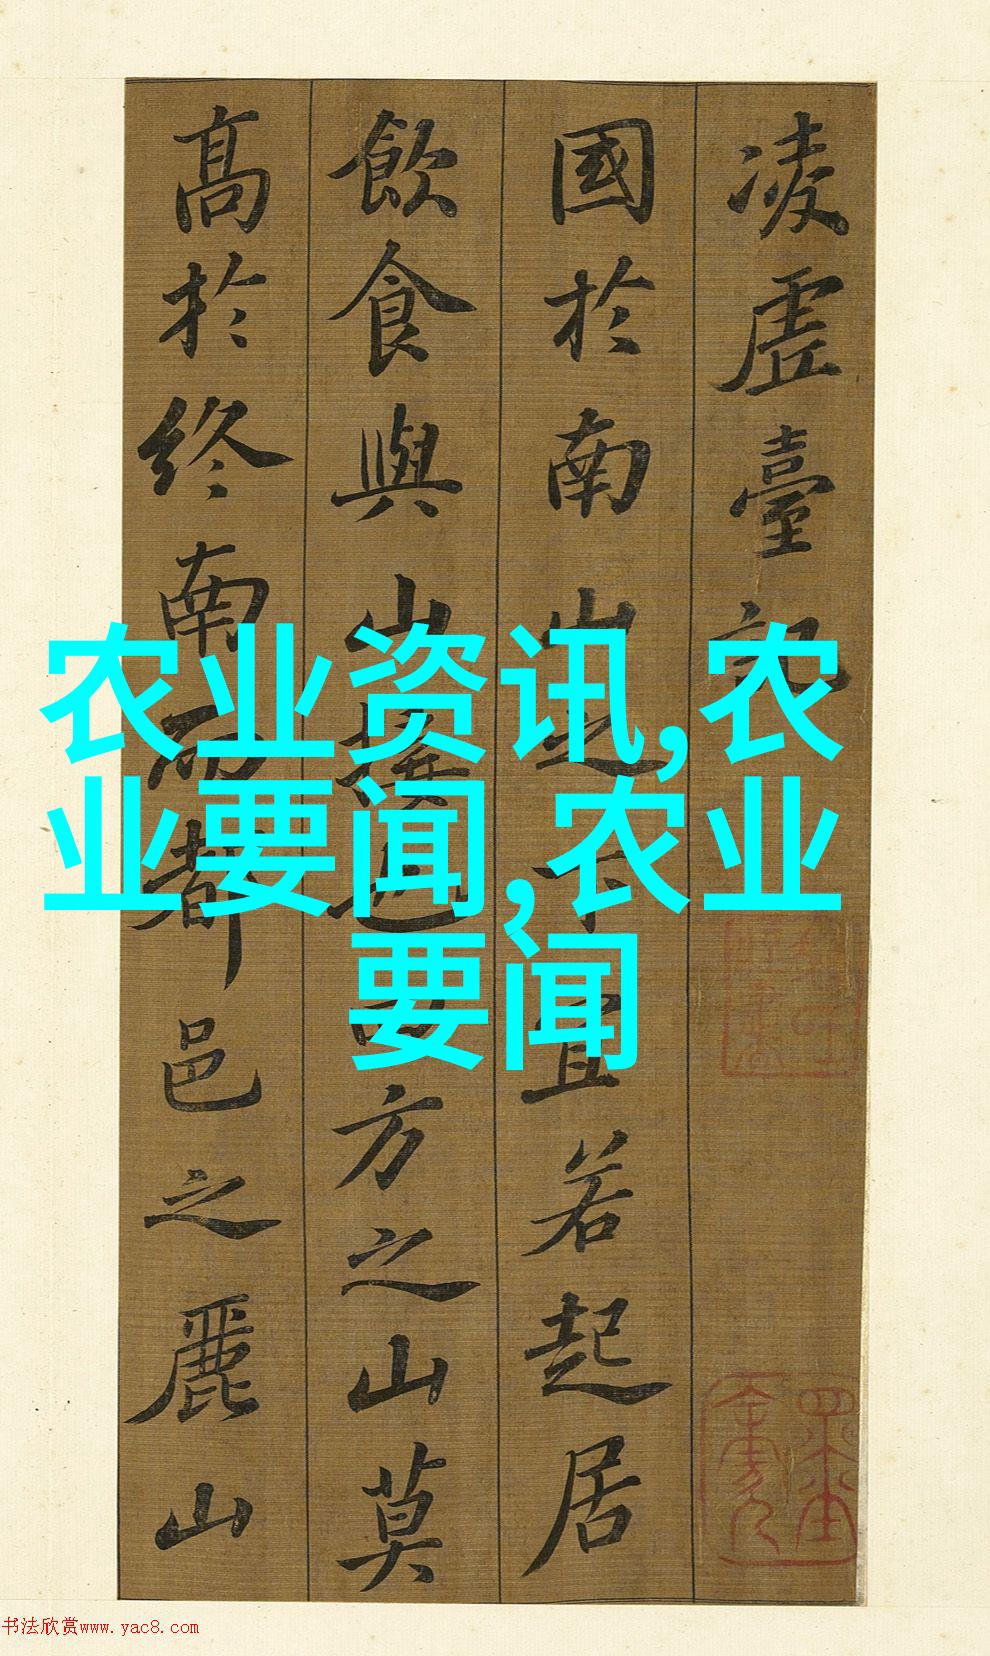 凌虛臺記
國於南山之下宜若起居
飲食與山接也四方之山莫
高於終南而都邑之麗山
农业资讯,农
业要闻,农业
要闻
书法欣赏www.yac8.com